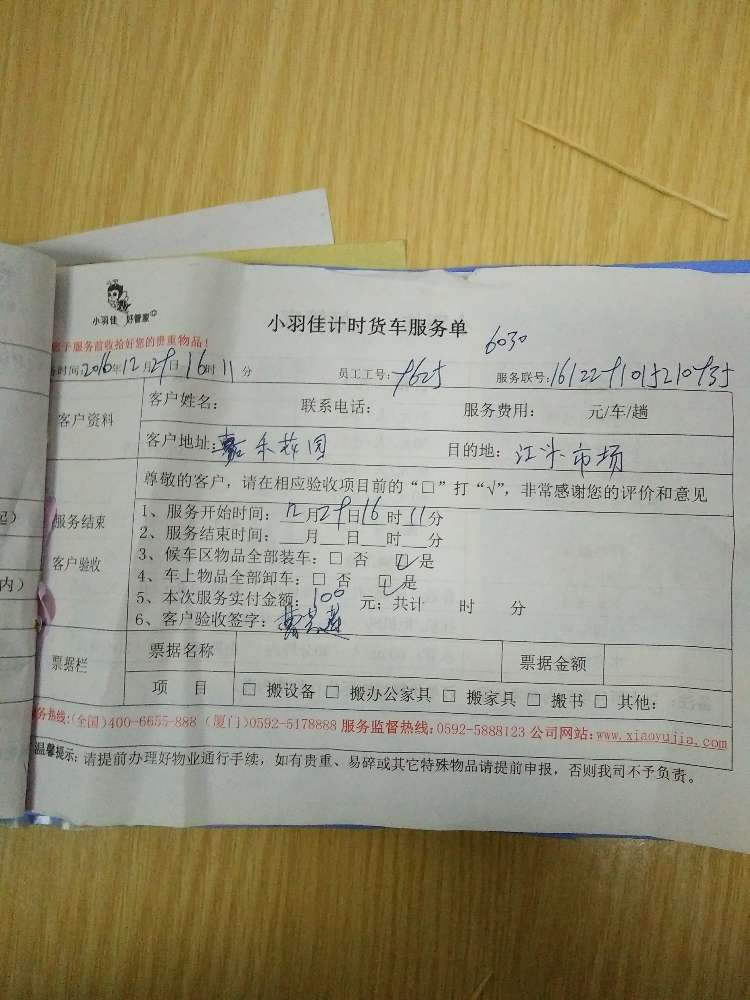 小羽佳 好管家
小羽佳计时货车服务单
6030
于服务前收拾好您的贵重物品！
时间:2016年12月29日16时11分 员工工号: 9625 服务联号:1612291015210935
客户资料
客户姓名: 联系电话: 服务费用: 元/车/趟
客户地址: 嘉禾花园 目的地: 江头市场
服务结束
客户验收
尊敬的客户，请在相应验收项目前的“□”打“√”，非常感谢您的评价和意见
1、服务开始时间: 12月29日16时11分
2、服务结束时间: 月 日 时 分
3、候车区物品全部装车: □ 否 ☑ 是
4、车上物品全部卸车: □ 否 ☑ 是
5、本次服务实付金额: 100 元; 共计 时 分
6、客户验收签字:
票据栏
票据名称 票据金额
项 目 □ 搬设备 □ 搬办公家具 □ 搬家具 □ 搬书 □ 其他:
务热线:(全国)400-6655-888 (厦门)0592-5178888 服务监督热线:0592-5888123 公司网站:www.xiaoyujia.com
温馨提示: 请提前办理好物业通行手续，如有贵重、易碎或其它特殊物品请提前申报，否则我司不予负责。
起）
内）